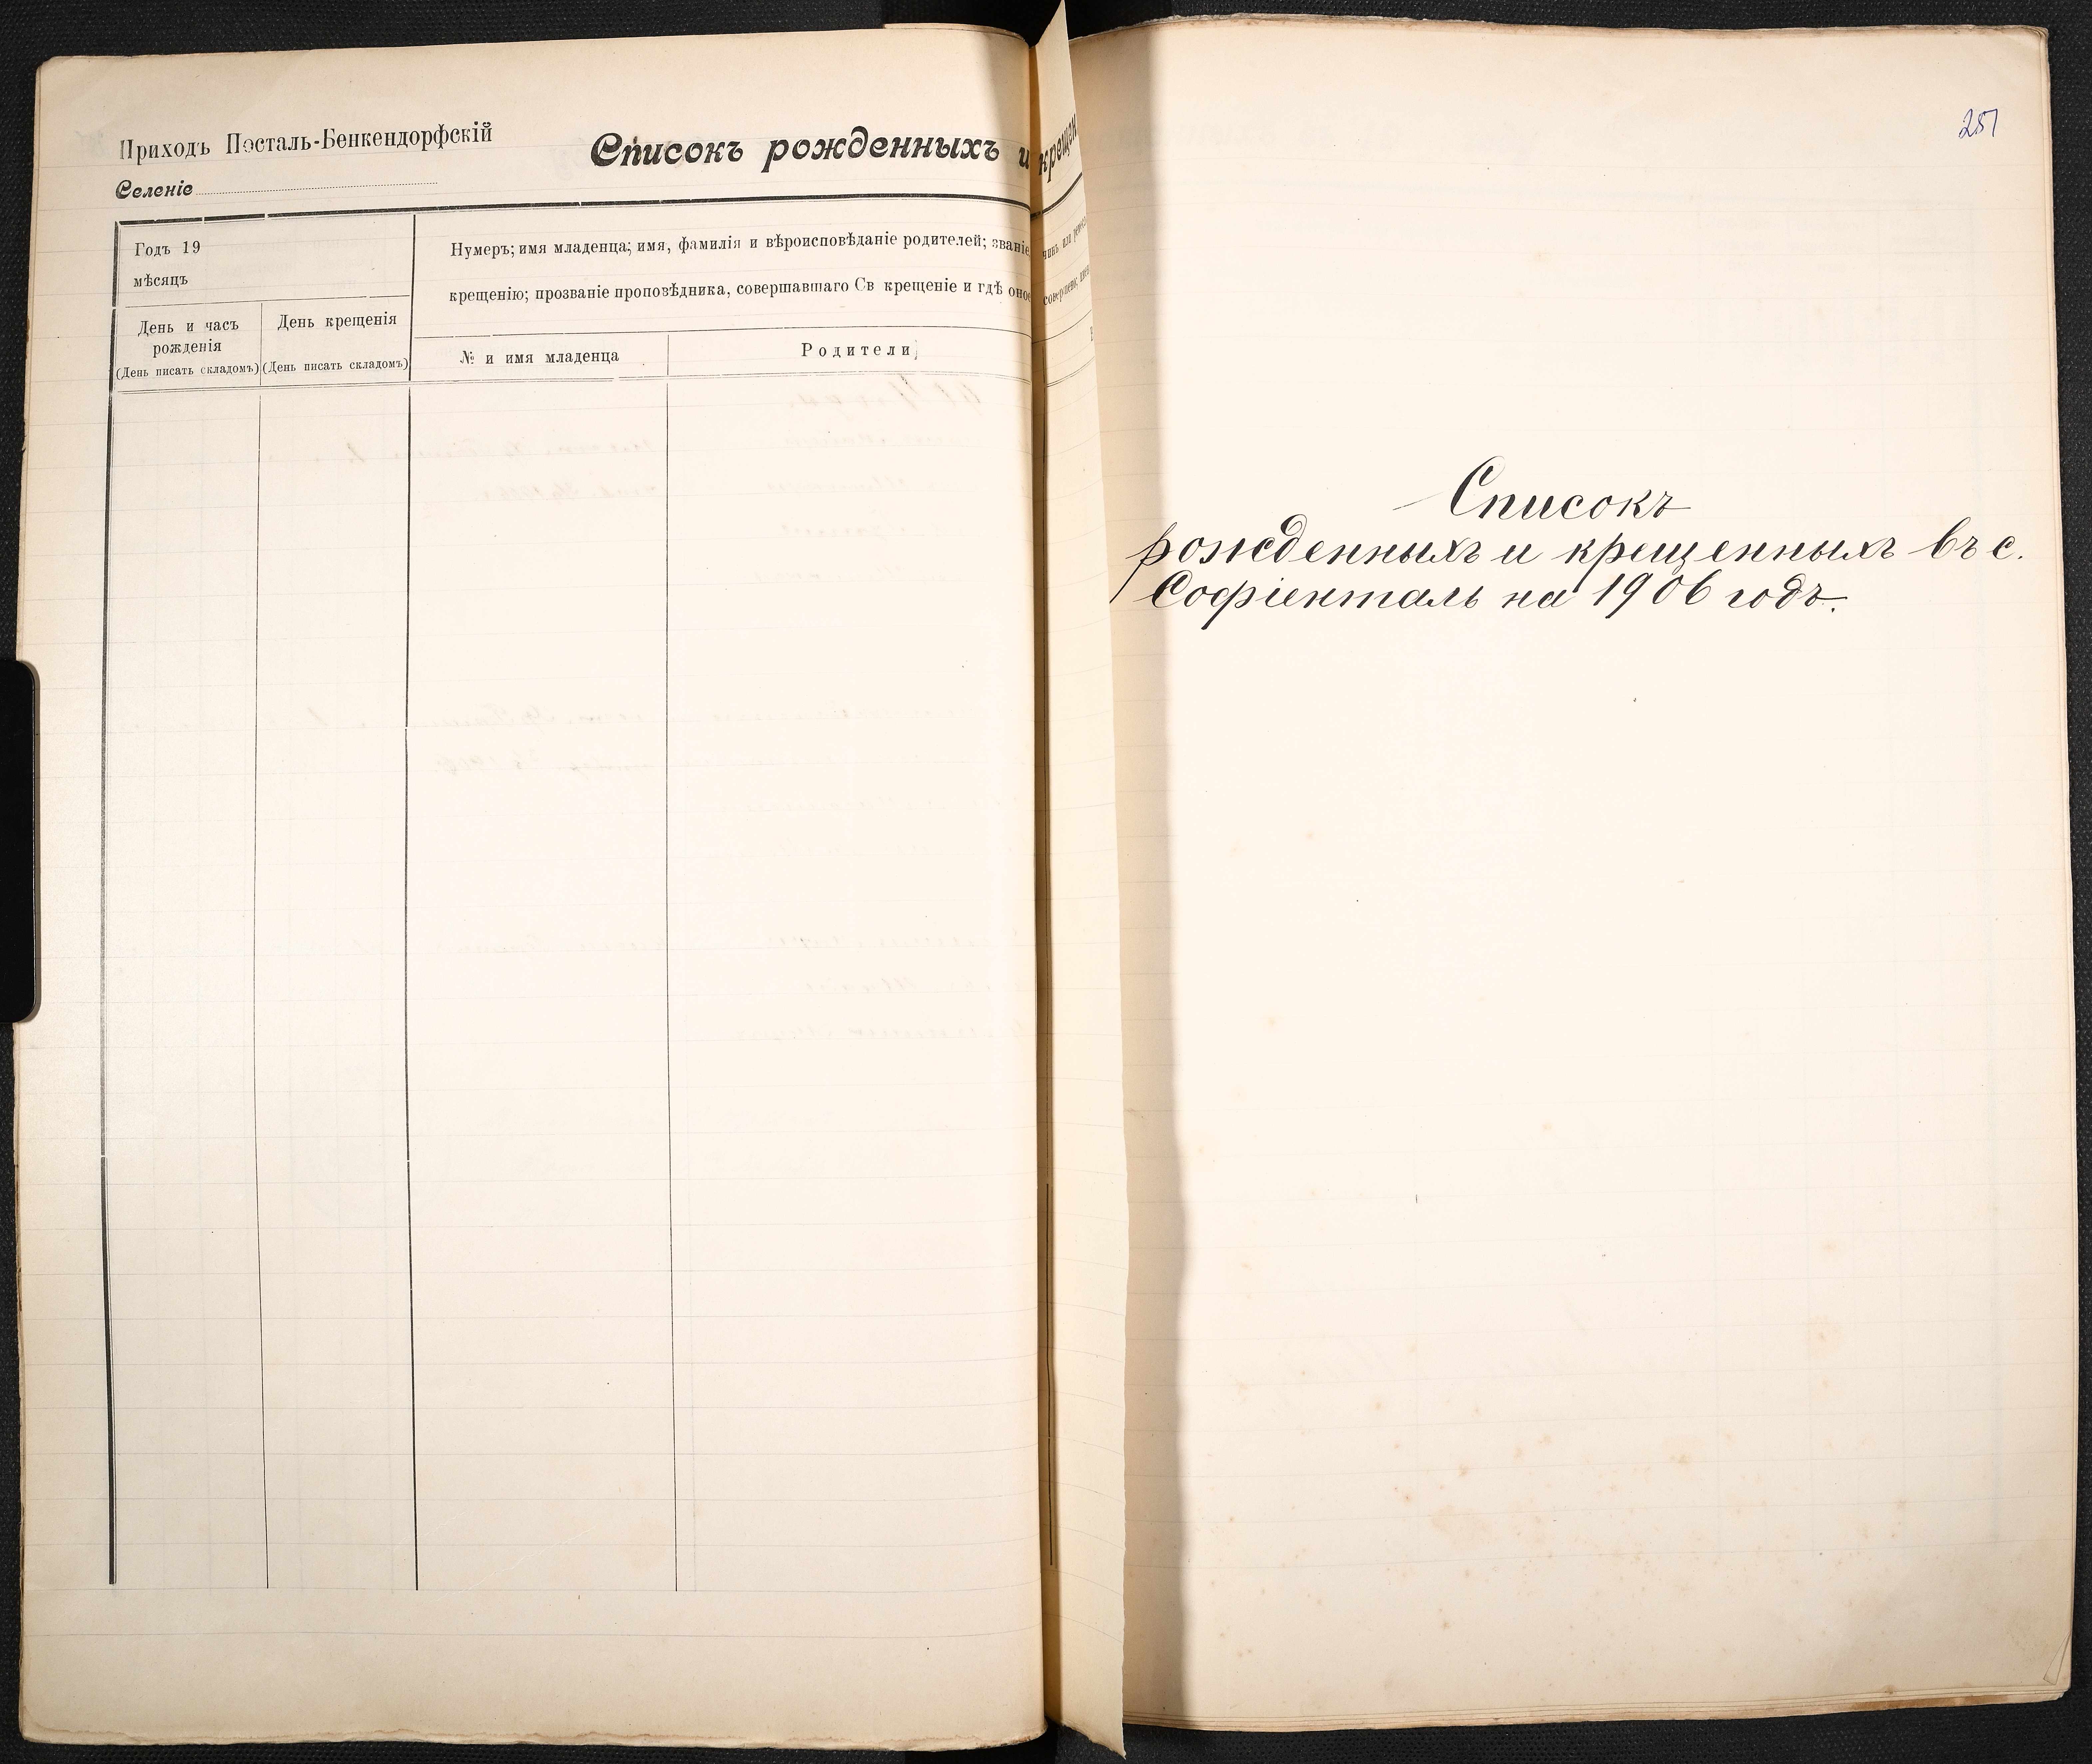 Приходъ Посталь-Бенкендорфскій
Селеніе
Списокъ рожденныхъ и крещен
Годъ 19
мѣсяцъ
День и часъ
рожденія
(День писать складомъ)
День крещенія
(День писать складомъ)
Нумеръ; имя младенца; имя, фамилія и вѣроисповѣданіе родителей; званіе
крещенію; прозваніе проповѣдника, совершавшаго Св крещеніе и гдѣ оное
№ и имя младенца
Родители
251
Списокъ
рожденныхъ и крещенныхъ въ с.
Софіенталь на 1906 годъ.